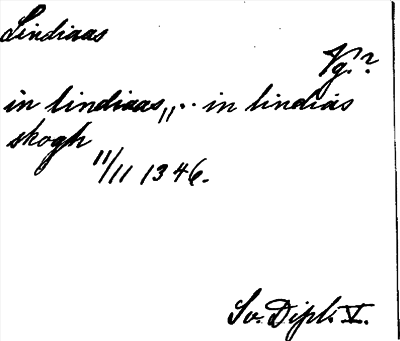 Lindiaas
Vg.?
in lindiaas,, .. in lindiás
skogh
11/11 1346.
Sv. Dipl. V.